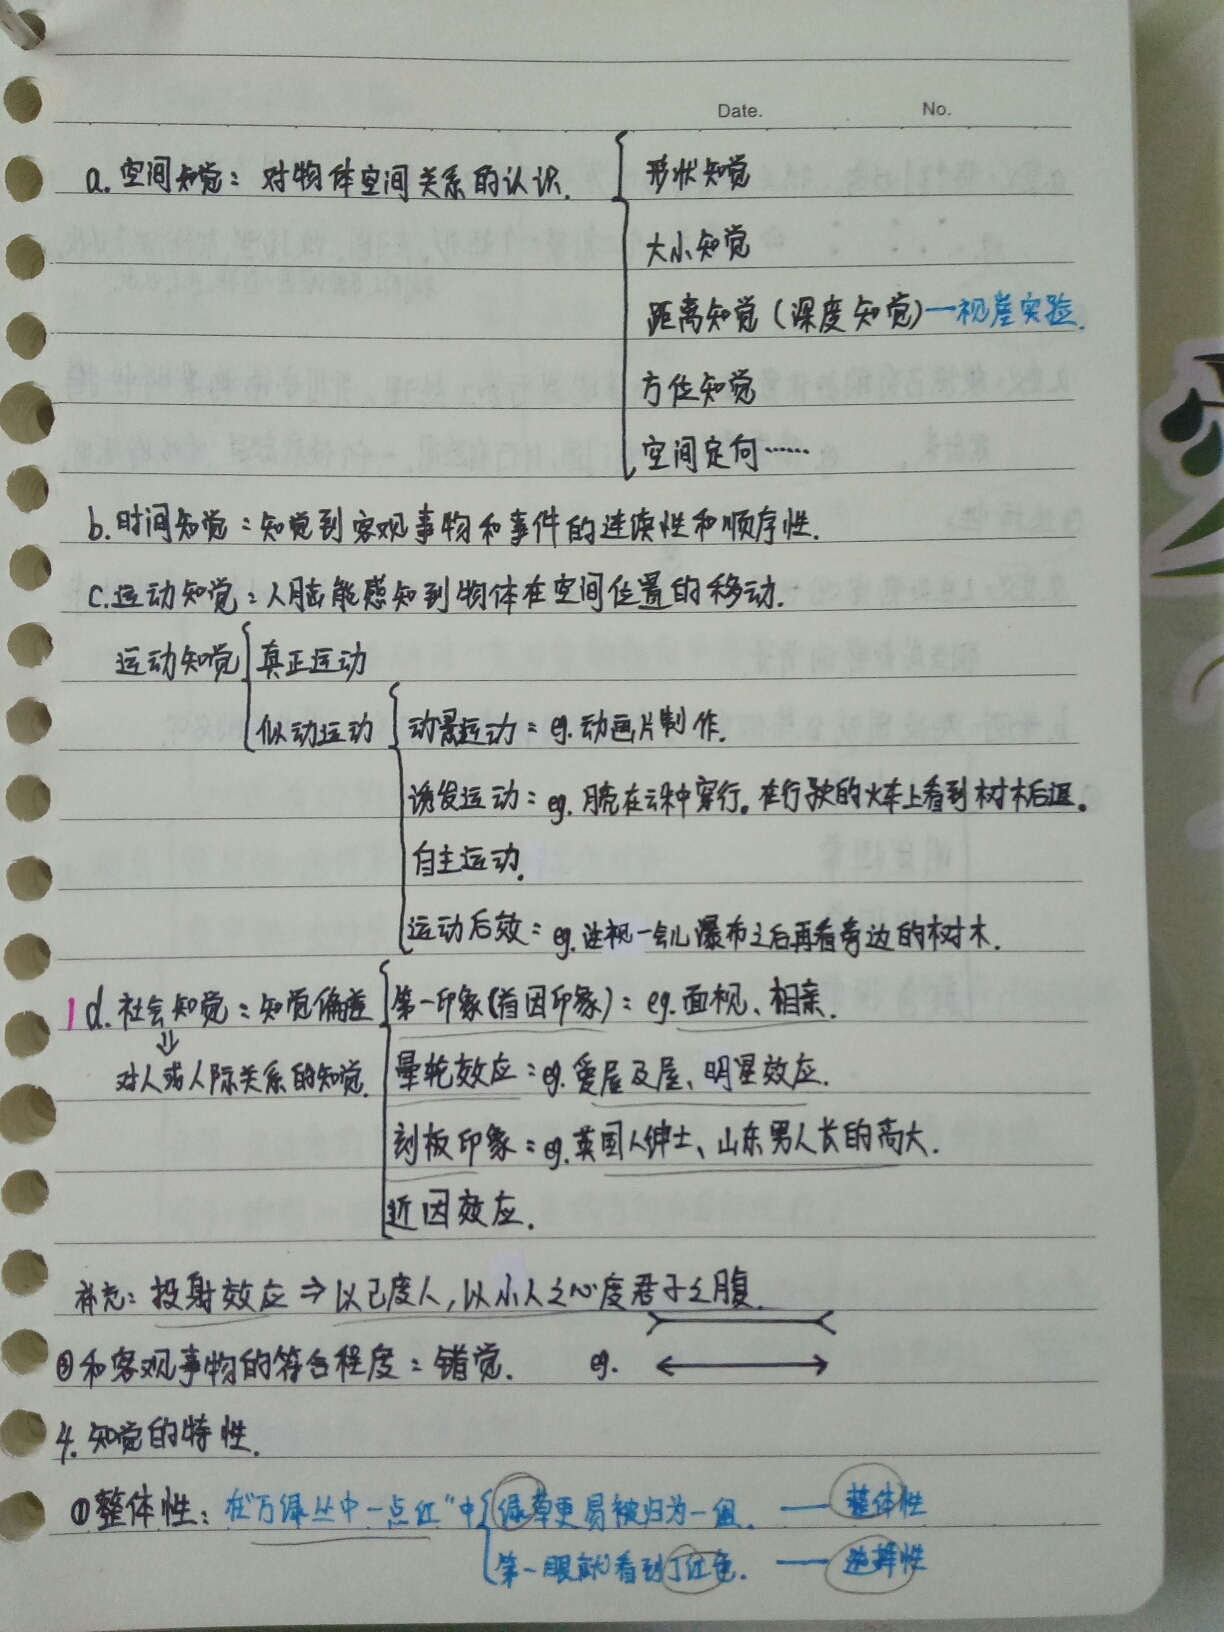 Date. No.
a. 空间知觉：对物体空间关系的认识.
形状知觉
大小知觉
距离知觉（深度知觉）—视崖实验.
方位知觉
空间定向……
b. 时间知觉：知觉到客观事物和事件的连续性和顺序性.
c. 运动知觉：人脑能感知到物体在空间位置的移动.
运动知觉 真正运动
似动运动 动景运动：eg. 动画片制作.
诱发运动：eg. 月亮在云中穿行。在行驶的火车上看到树木后退。
自主运动.
运动后效：eg. 注视一会儿瀑布之后再看旁边的树木.
1 d. 社会知觉：知觉偏差 第一印象(首因印象)：eg. 面视、相亲.
⇓
对人或人际关系的知觉. 晕轮效应：eg. 爱屋及屋、明星效应.
刻板印象：eg. 英国人绅士、山东男人长的高大.
近因效应.
补充：投射效应 ⇒ 以己度人，以小人之心度君子之腹.
③和客观事物的符合程度：错觉. eg.
4. 知觉的特性.
①整体性：在"万绿丛中一点红"中 绿草更易被归为一组. —— 整体性
第一眼就看到了红色. —— 选择性